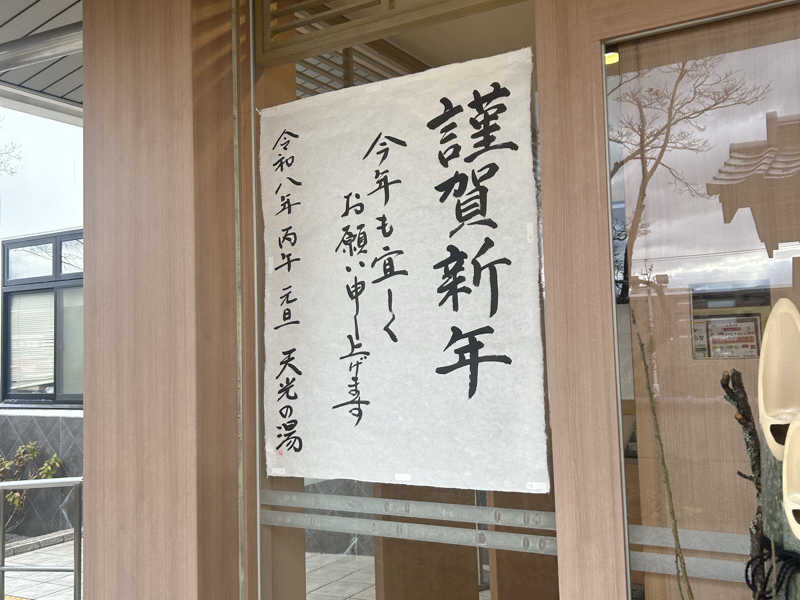 謹賀新年
今年も宜しく
お願い申し上げます
令和八年 丙午 元旦 天光の湯